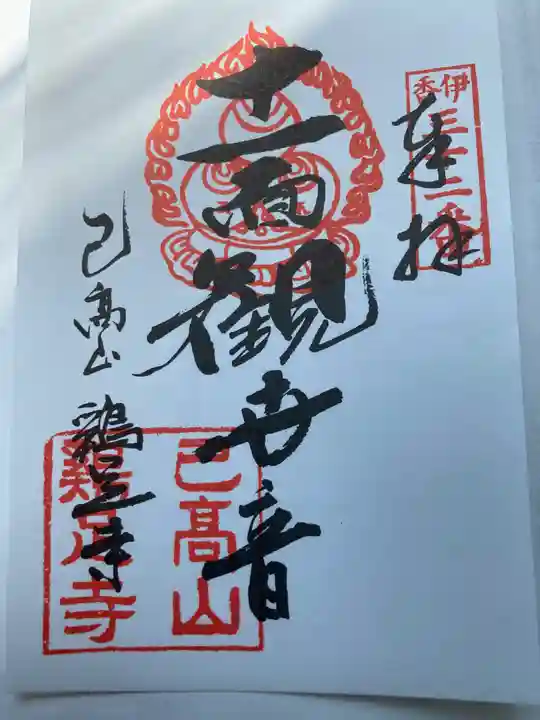 伊香三十二番
奉拝
十一面観世音
己高山 鶏足寺
己高山
鶏足寺